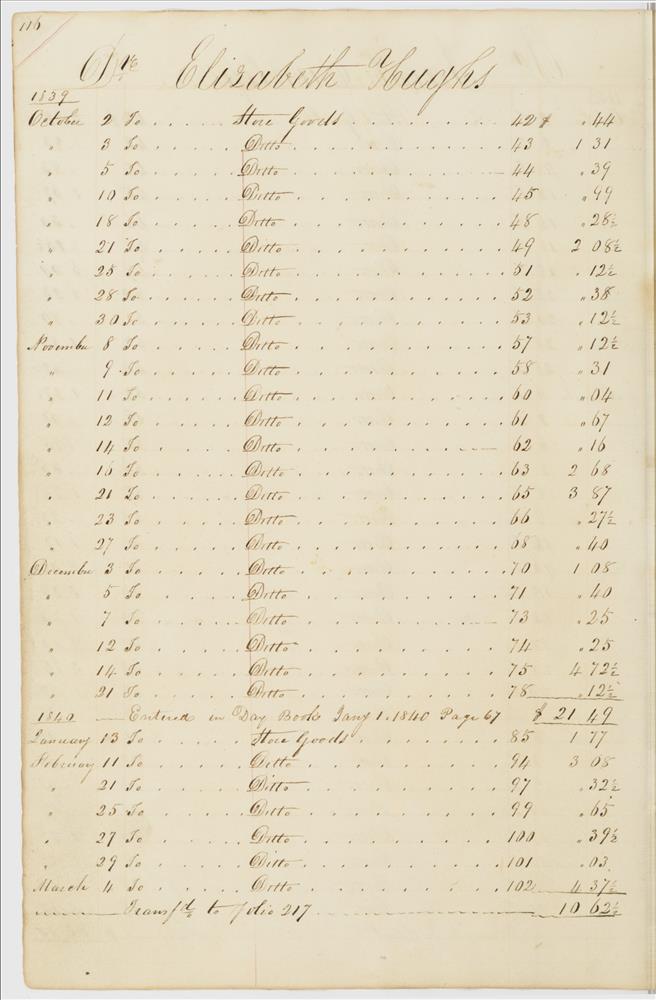 116
Dr. Elizabeth Hughs
1839
October 2 To . . . . . Store Goods . . . . . . . . . 42 $ " 44
" 3 To . . . . . Ditto . . . . . . . . . . . 43 1 31
" 5 To . . . . . Ditto . . . . . . . . . . . 44 " 39
" 10 To . . . . . Ditto . . . . . . . . . . . 45 " 99
" 18 To . . . . . Ditto . . . . . . . . . . . 48 " 28½
" 21 To . . . . . Ditto . . . . . . . . . . . 49 2 08½
" 25 To . . . . . Ditto . . . . . . . . . . . 51 " 12½
" 28 To . . . . . Ditto . . . . . . . . . . . 52 " 38
" 30 To . . . . . Ditto . . . . . . . . . . . 53 " 12½
November 8 To . . . . . Ditto . . . . . . . . . . . 57 " 12½
" 9 To . . . . . Ditto . . . . . . . . . . . 58 " 31
" 11 To . . . . . Ditto . . . . . . . . . . . 60 " 04
" 12 To . . . . . Ditto . . . . . . . . . . . 61 " 67
" 14 To . . . . . Ditto . . . . . . . . . . . 62 " 16
" 16 To . . . . . Ditto . . . . . . . . . . . 63 2 68
" 21 To . . . . . Ditto . . . . . . . . . . . 65 3 87
" 23 To . . . . . Ditto . . . . . . . . . . . 66 " 27½
" 27 To . . . . . Ditto . . . . . . . . . . . 68 " 40
December 3 To . . . . . Ditto . . . . . . . . . . . 70 1 08
" 5 To . . . . . Ditto . . . . . . . . . . . 71 " 40
" 7 To . . . . . Ditto . . . . . . . . . . . 73 " 25
" 12 To . . . . . Ditto . . . . . . . . . . . 74 " 25
" 14 To . . . . . Ditto . . . . . . . . . . . 75 4 72½
" 21 To . . . . . Ditto . . . . . . . . . . . 78 " 12½
1840 Entered in Day Book Jany 1. 1840 Page 67 $ 21 49
January 13 To . . . . . Store Goods . . . . . . . . 85 1 77
February 11 To . . . . . Ditto . . . . . . . . . . . 94 3 08
" 21 To . . . . . Ditto . . . . . . . . . . . 97 " 32½
" 25 To . . . . . Ditto . . . . . . . . . . . 99 " 65
" 27 To . . . . . Ditto . . . . . . . . . . . 100 " 39½
" 29 To . . . . . Ditto . . . . . . . . . . . 101 " 03
March 4 To . . . . . Ditto . . . . . . . . . . . 102 4 37½
Transfd to folio 217 10 62½